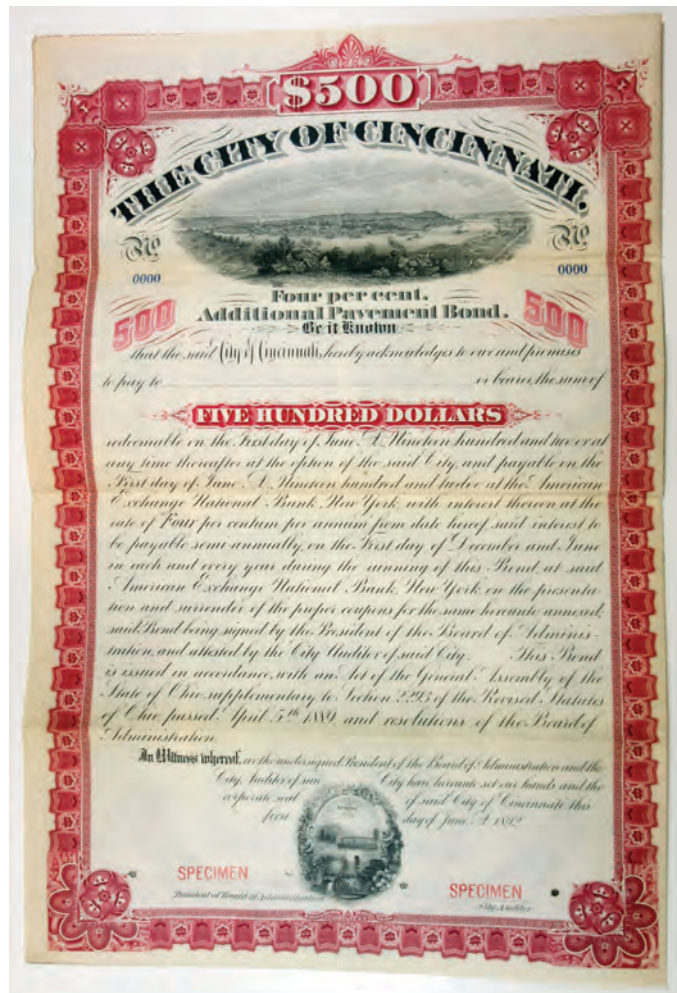 $500
THE CITY OF CINCINNATI.
No No
0000 0000
Four per cent.
500 Additional Pavement Bond. 500
Be it Known
that the said City of Cincinnati, hereby acknowledges to owe and promises
to pay to or bearer, the sum of
FIVE HUNDRED DOLLARS
redeemable on the First day of June A.D. Nineteen hundred and two or at
any time thereafter at the option of the said City, and payable on the
First day of June A.D. Nineteen hundred and twelve at the American
Exchange National Bank, New York, with interest thereon at the
rate of Four per centum per annum from date hereof, said interest to
be payable semi-annually, on the First day of December and June
in each and every year during the running of this Bond, at said
American Exchange National Bank, New York on the presenta-
tion and surrender of the proper coupons for the same hereunto annexed,
said Bond being signed by the President of the Board of Adminis-
tration, and attested by the City Auditor of said City. This Bond
is issued in accordance, with an Act of the General Assembly of the
State of Ohio supplementary to Section 2293 of the Revised Statutes
of Ohio, passed April 5th 1889 and resolutions of the Board of
Administration.
In Witness whereof, we the undersigned President of the Board of Administration and the
City Auditor of City have hereunto set our hands and the
corporate seal of said City of Cincinnati this
first day of June A.D. 1892
SPECIMEN SPECIMEN
President of Board of Administration City Auditor